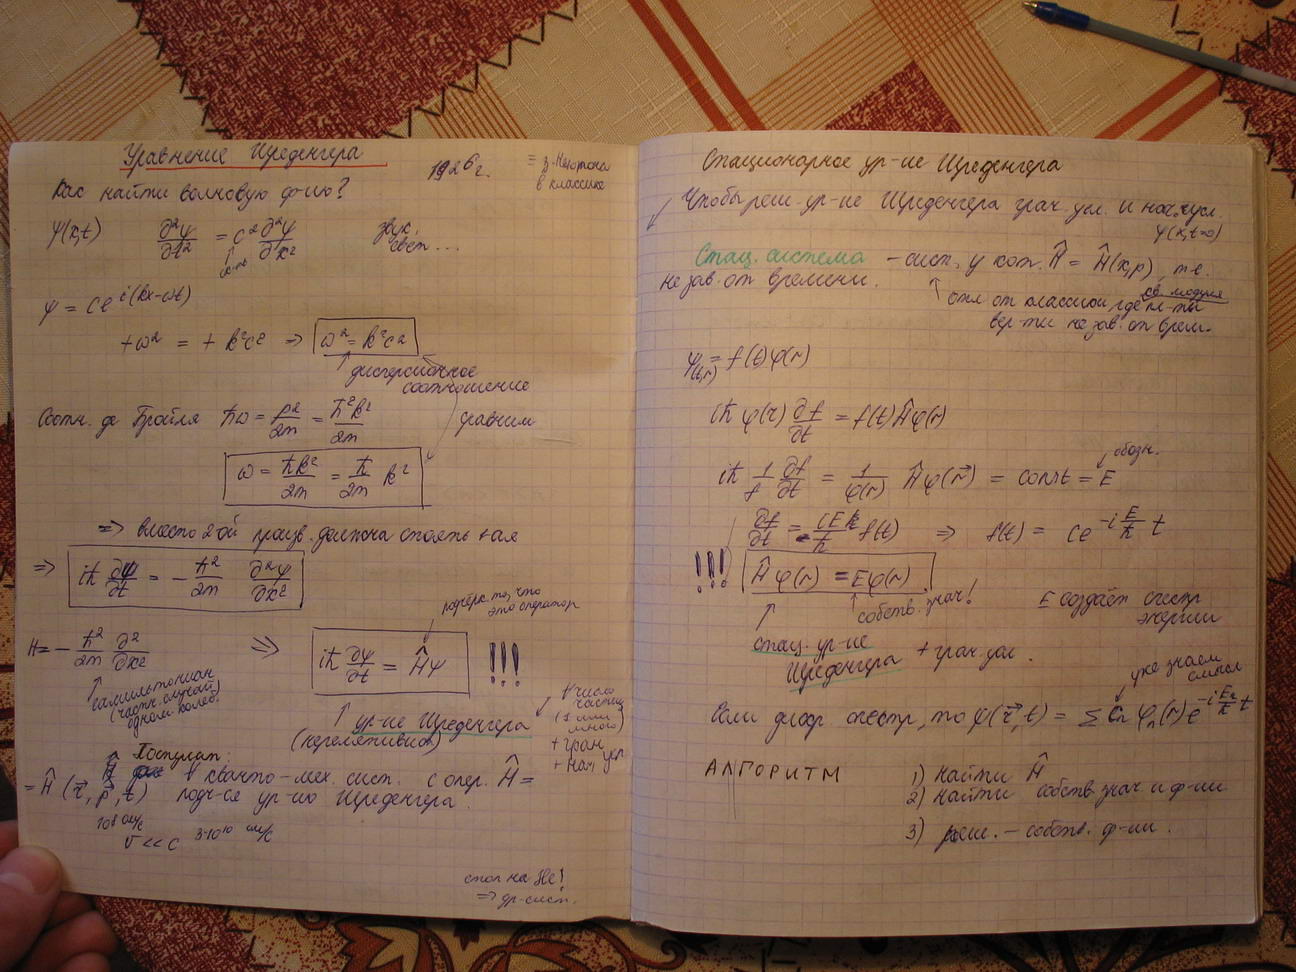 Уравнение Шредингера
1926г.
≡ з. Ньютона
в классике
Как найти волновую ф-ию?
ψ(x,t) ∂²ψ/∂t² = c² ∂²ψ/∂x² звук, свет...
ψ = Ce^{i(kx-ωt)}
+ω² = +k²c² ⇒ ω² = k²c²
дисперсионное
соотношение
Соотн. де Бройля ħω = p²/2m = ħ²k²/2m сравним
ω = ħk²/2m = ħ/2m k²
⇒ вместо 2-ой произв. должна стоять 1-ая
⇒ iħ ∂ψ/∂t = - ħ²/2m ∂²ψ/∂x²
подчерк. то, что
это оператор
H = - ħ²/2m ∂²/∂x² ⇒ iħ ∂ψ/∂t = Ĥψ !!!
гамильтониан
(частн. случай
одном. колеб.
↑ ур-ие Шредингера
(нерелятивис)
число
частиц
(1 или
много)
+ гран
+ нач. усл
Постулат:
в квантово-мех. сист. с опер. Ĥ =
= Ĥ(r⃗, p⃗, t) подч-ся ур-ию Шредингера.
10⁸ см/с
v << c 3·10¹⁰ см/с
стоп на Не!
⇒ др. сист.
Стационарное ур-ие Шредингера
Чтобы реш. ур-ие Шредингера гран. усл. и нач. усл.
ψ(x,t=0)
Стац. система - сист, у кот. Ĥ = Ĥ(x,p), т.е.
не зав. от времени.
↑ отл от классики где
кв. модуля
вер-ти не зав. от врем.
ψ(t,r) = f(t)φ(r)
iħ φ(r) ∂f/∂t = f(t)Ĥφ(r)
обозн.
iħ 1/f ∂f/∂t = 1/φ(r) Ĥφ(r⃗) = const = E
∂f/∂t = - iE/ħ f(t) ⇒ f(t) = ce^{-i E/ħ t}
!!! Ĥφ(r) = Eφ(r)
собств. знач!
E создаёт спектр
энергии
стац. ур-ие
Шредингера + гран. усл.
уже знаем
смысл
Если дискр спектр, то ψ(r⃗,t) = Σ Cn φn(r)e^{-i En/ħ t}
АЛГОРИТМ 1) найти Ĥ
2) найти собств. знач и ф-ии
3) реш. – собств. ф-ии.